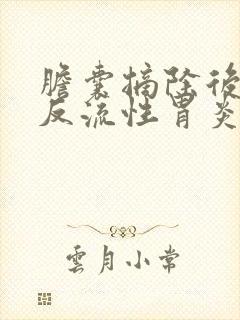 膽囊摘除後
反流性胃炎
雲月小常